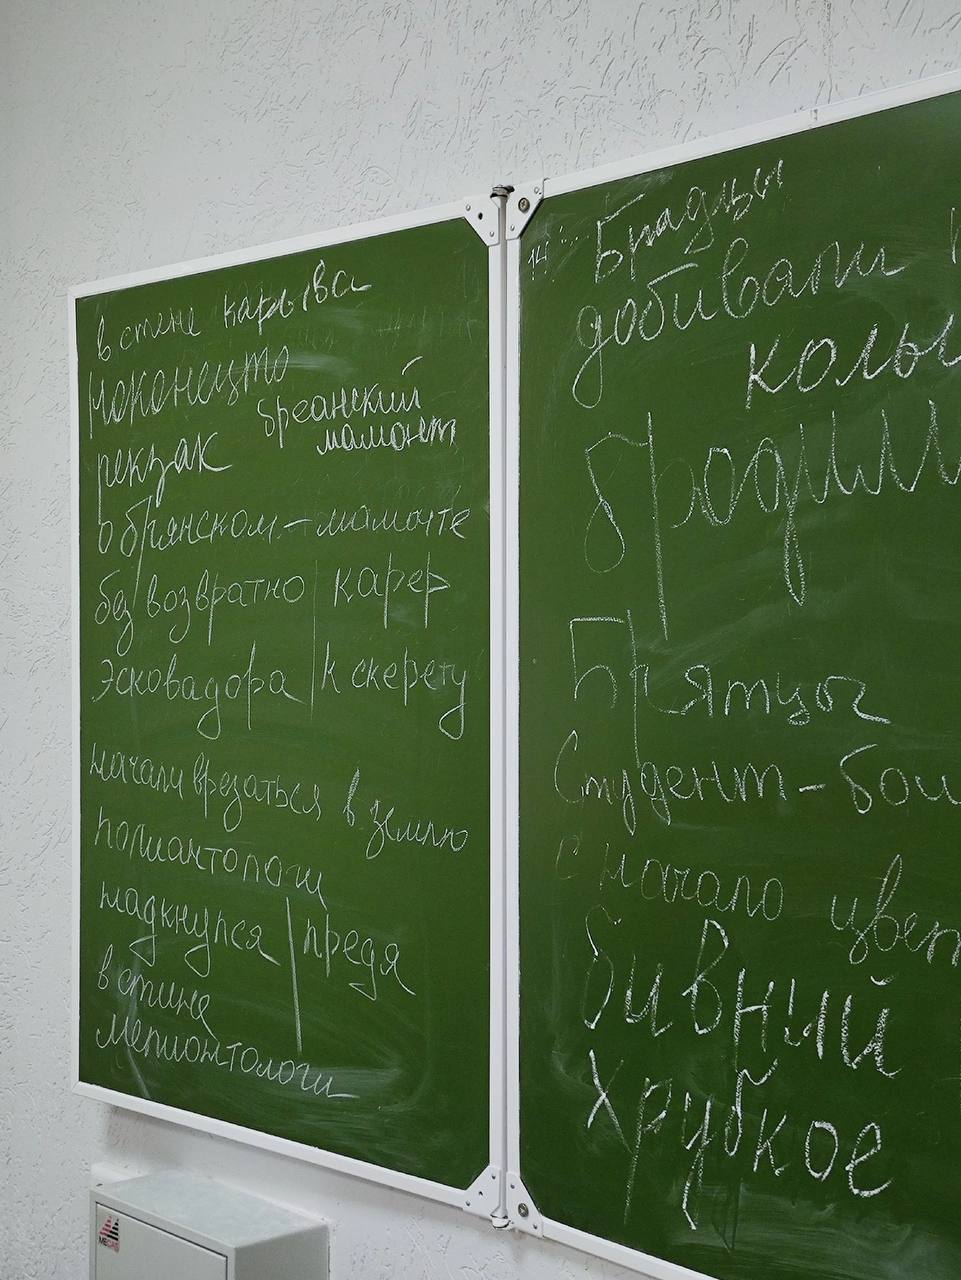 в стене карьва
чоконецто
бреанский
мамонт
рекзак
о брянском-мамонте
без возвратно | карер
эсковадора | к скерету
начали врезаться в землю
полиантологи
надкнулся | предя
в стина
мепионтологи
14
Бнадцы
добивали
колы
бродили
Брятцы
Студент-бои
с начало цвет
бивный
Хрубкое
MECAS